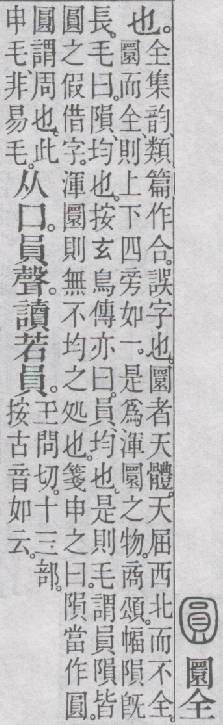 圓 圜全
也。
全集韵、類篇作合。誤字也。圜者天體。天屈西北而不全。
圜而全則上下四旁如一。是爲渾圜之物。商頌。幅隕既
長。毛曰。隕、均也。按玄鳥傳亦曰。員、均也。是則毛謂員隕皆
圓之假借字。渾圜則無不均之処也。箋申之曰。隕當作圓。
圓謂周也。此
申毛、非易毛。
从囗。員聲。讀若員。
王問切。十三部。
按古音如云。